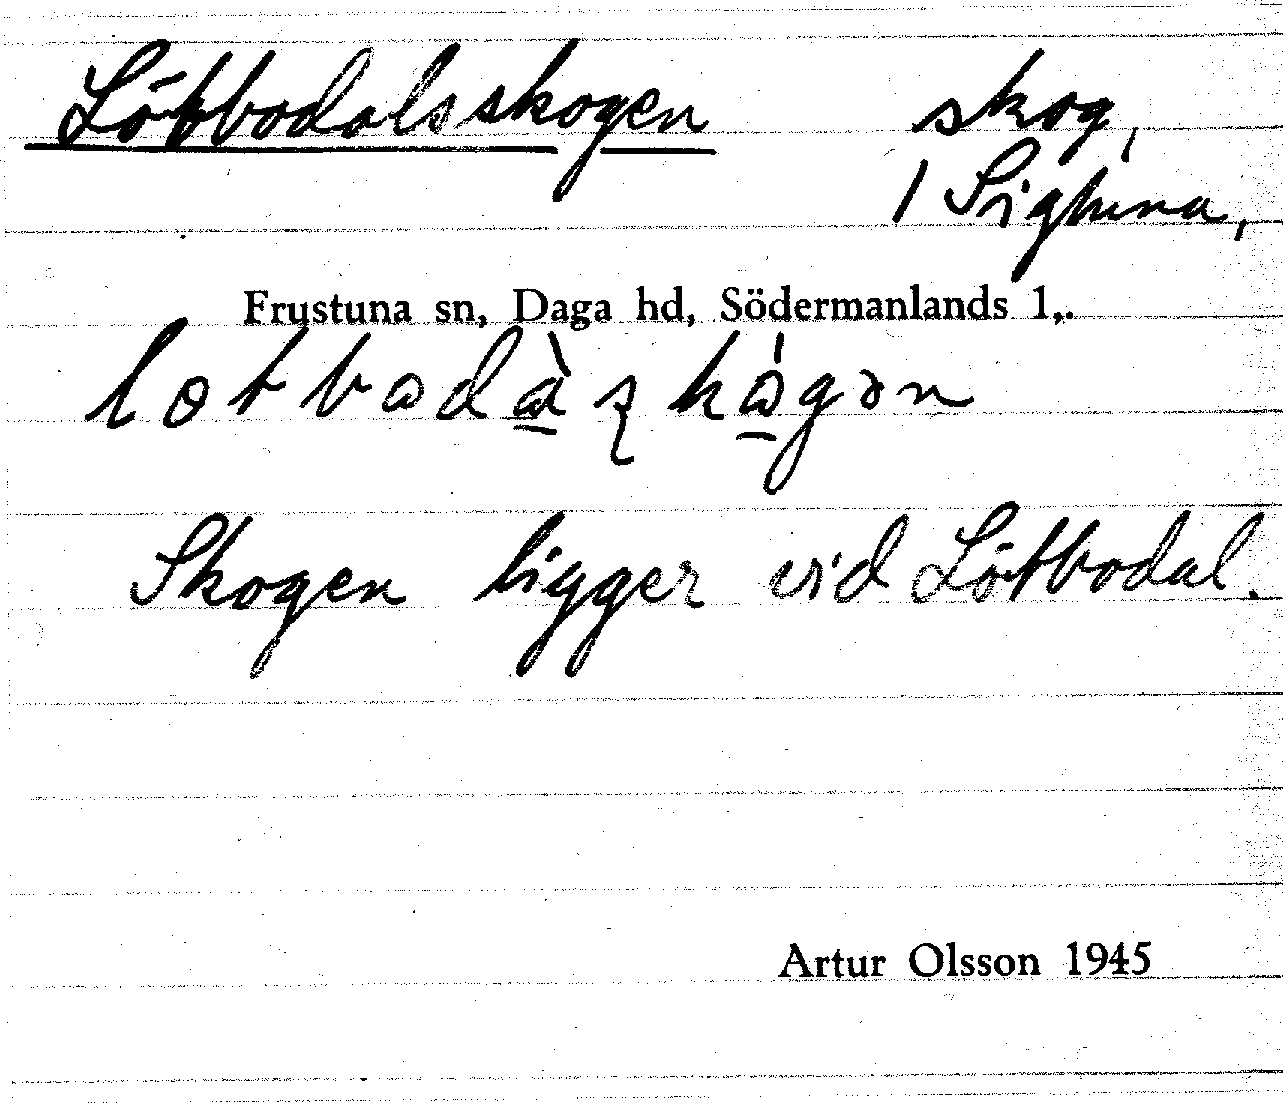 Lötbodalsskogen skog,
1 Sigtuna,
Frustuna sn, Daga hd, Södermanlands l,.
Skogen ligger vid Lötbodal.
Artur Olsson 1945